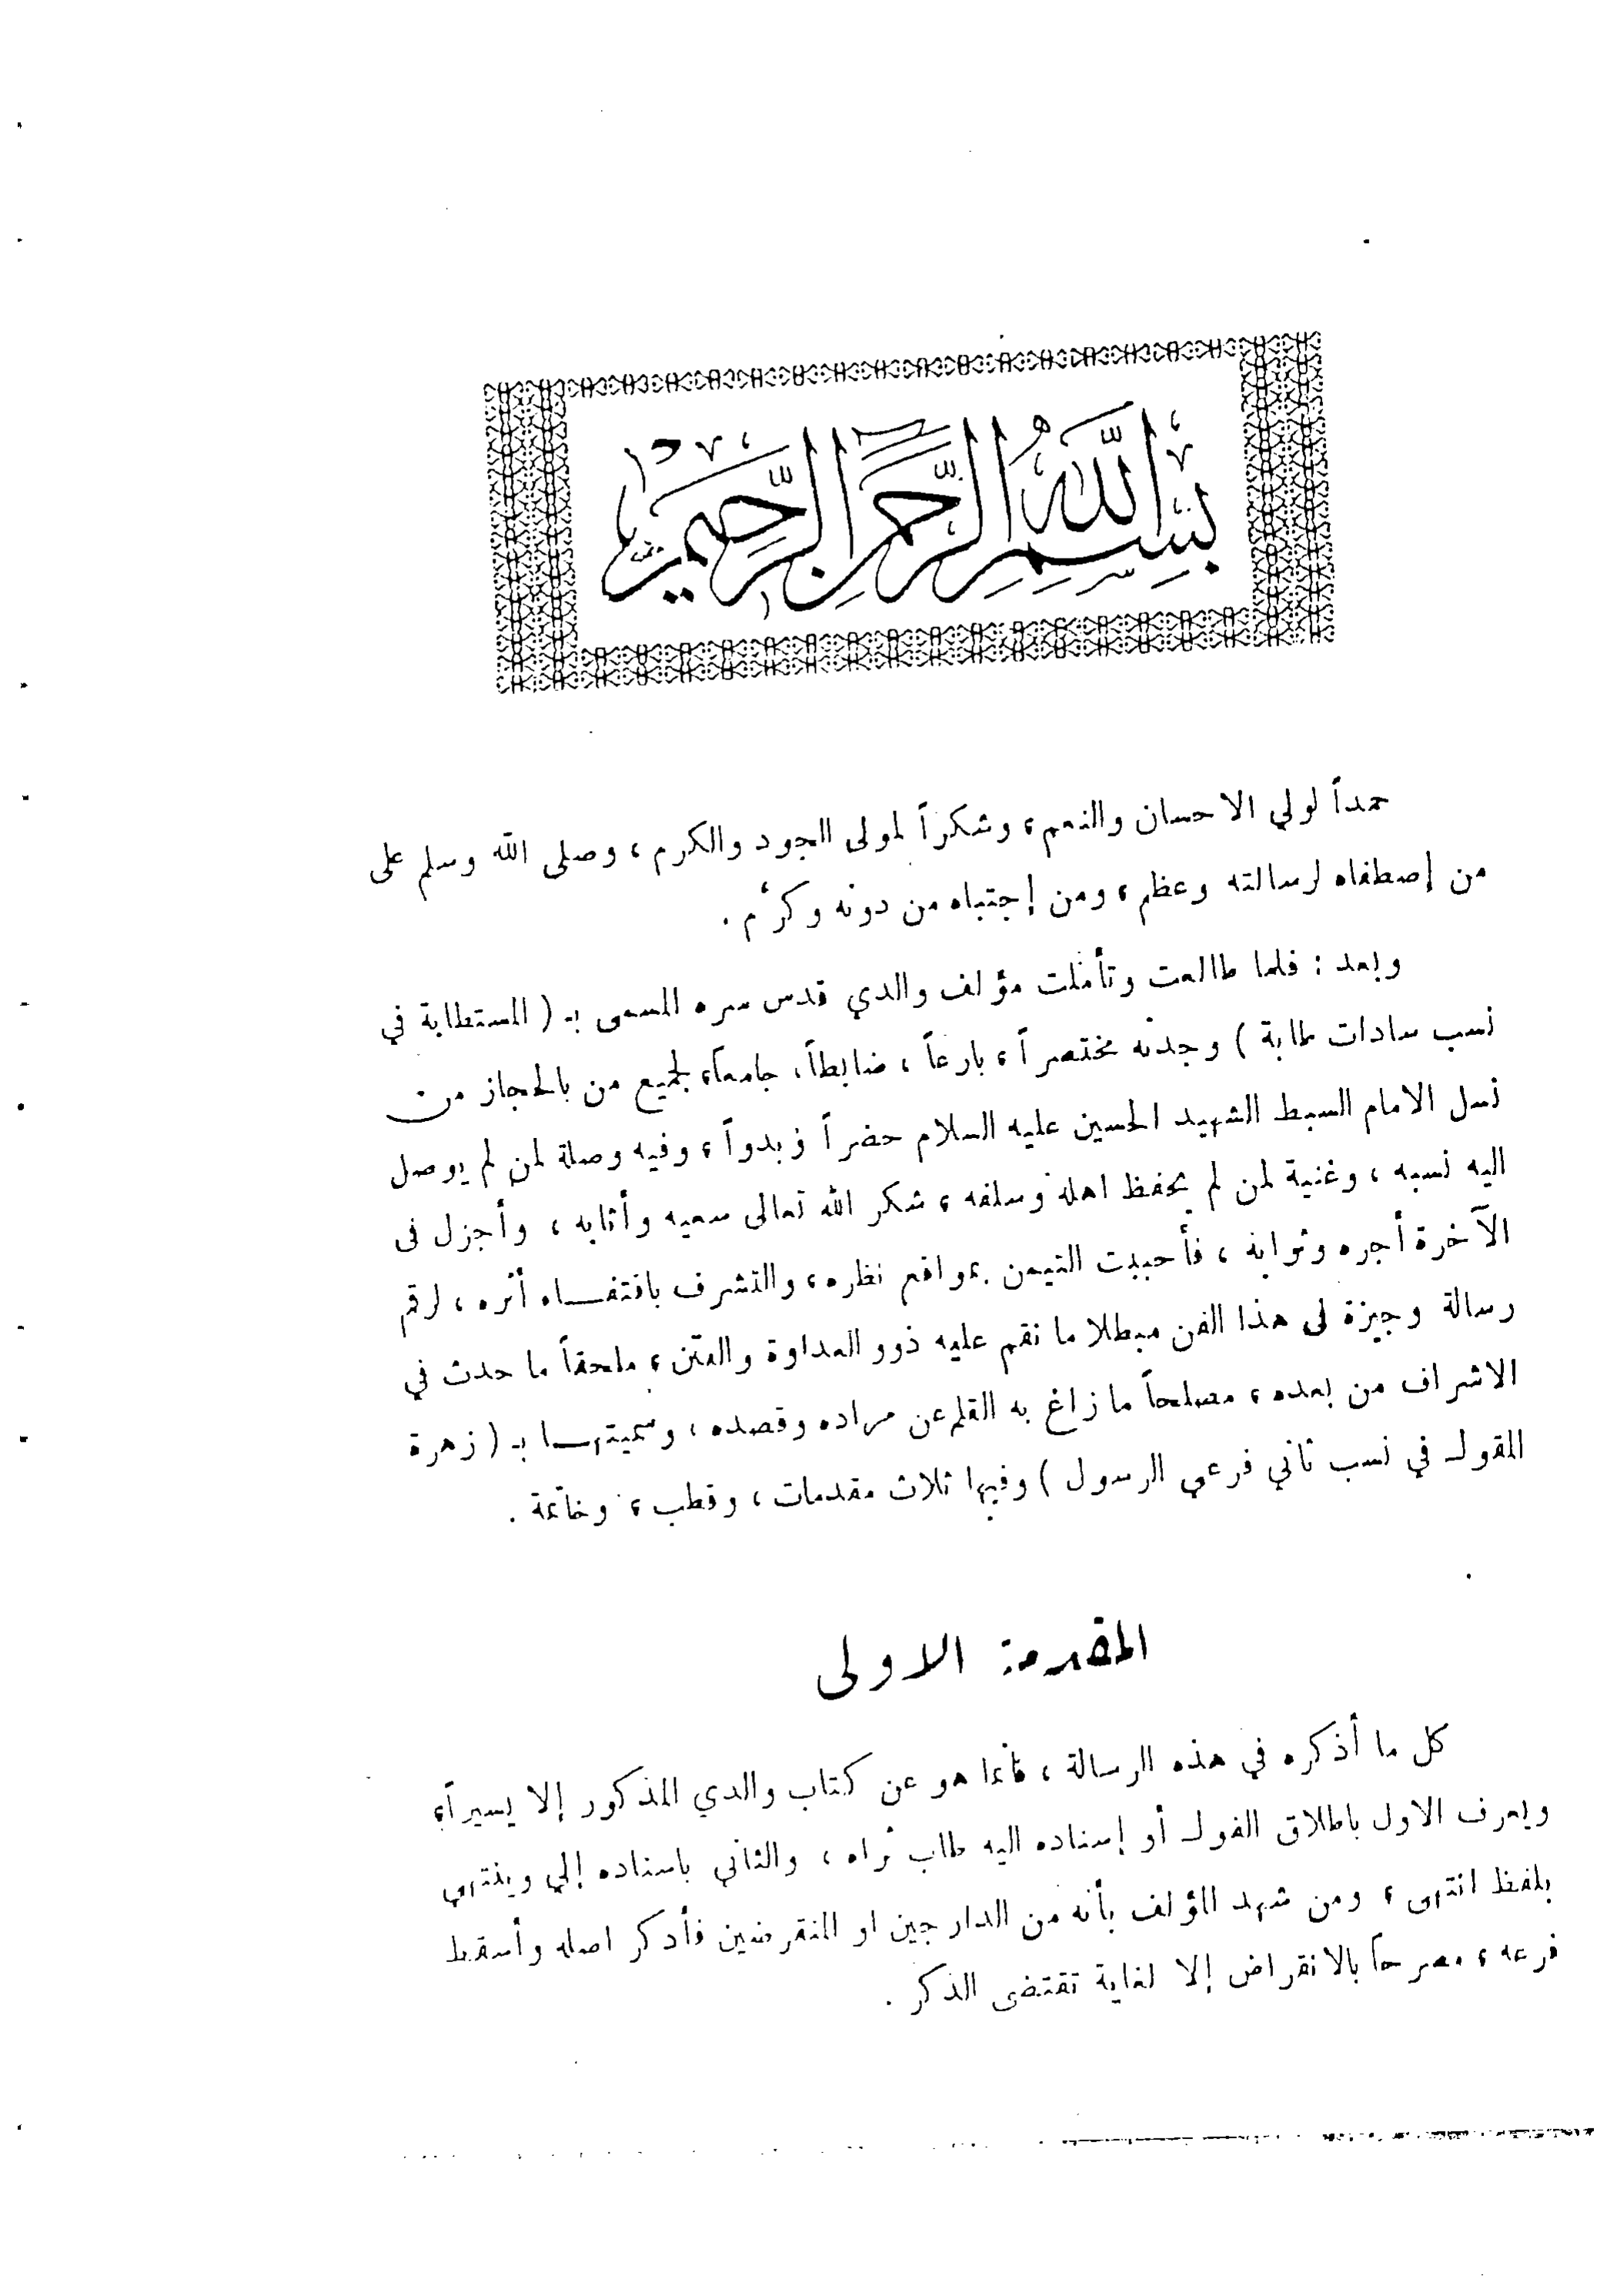 بسم الله الرحمن الرحيم
حمداً لولي الاحسان والنعم، وشكراً لمولى الجود والكرم، وصلى الله وسلم على
من إصطفاه لرسالته وعظم، ومن إجتباه من دونه وكرّم.
وبعد : فلما طالعت وتأملت مؤلف والدي قدس سره المسمى بـ ( المستطابة في
نسب سادات طابة ) وجدته مختصراً، بارعاً، ضابطاً، جامعاً، لجميع من بالحجاز من
نسل الامام السبط الشهيد الحسين عليه السلام حضراً وبدواً، وفيه وصلة لمن لم يوصل
اليه نسبه، وغنية لمن لم يحفظ اهله وسلفه، شكر الله تعالى سعيه وأثابه، وأجزل فى
الآخرة أجره وثوابه، فأحببت التيمن بمواقع نظره، والتشرف باقتفاء أثره، لرقم
رسالة وجيزة لى هذا الفن مبطلا ما نقم عليه ذوو العداوة والفتن، ملحقاً ما حدث في
الاشراف من بعده، مصلحاً ما زاغ به القلم عن مراده وقصده، وسميتها بـ ( زهرة
المقول في نسب ثاني فرعي الرسول ) وفيها ثلاث مقدمات، وقطب، وخاتمة.
المقدمة الاولى
كل ما أذكره في هذه الرسالة، فأنما هو عن كتاب والدي المذكور إلا يسيراً،
ويعرف الاول باطلاق القول أو إسناده اليه طاب ثراه، والثاني باسناده إلي وينتهي
بلفظ انتهى، ومن شهد المؤلف بأنه من الدارجين او المنقرضين فأذكر اصله وأسقط
فرعه، مصرحاً بالانقراض إلا لغاية تقتضى الذكر.